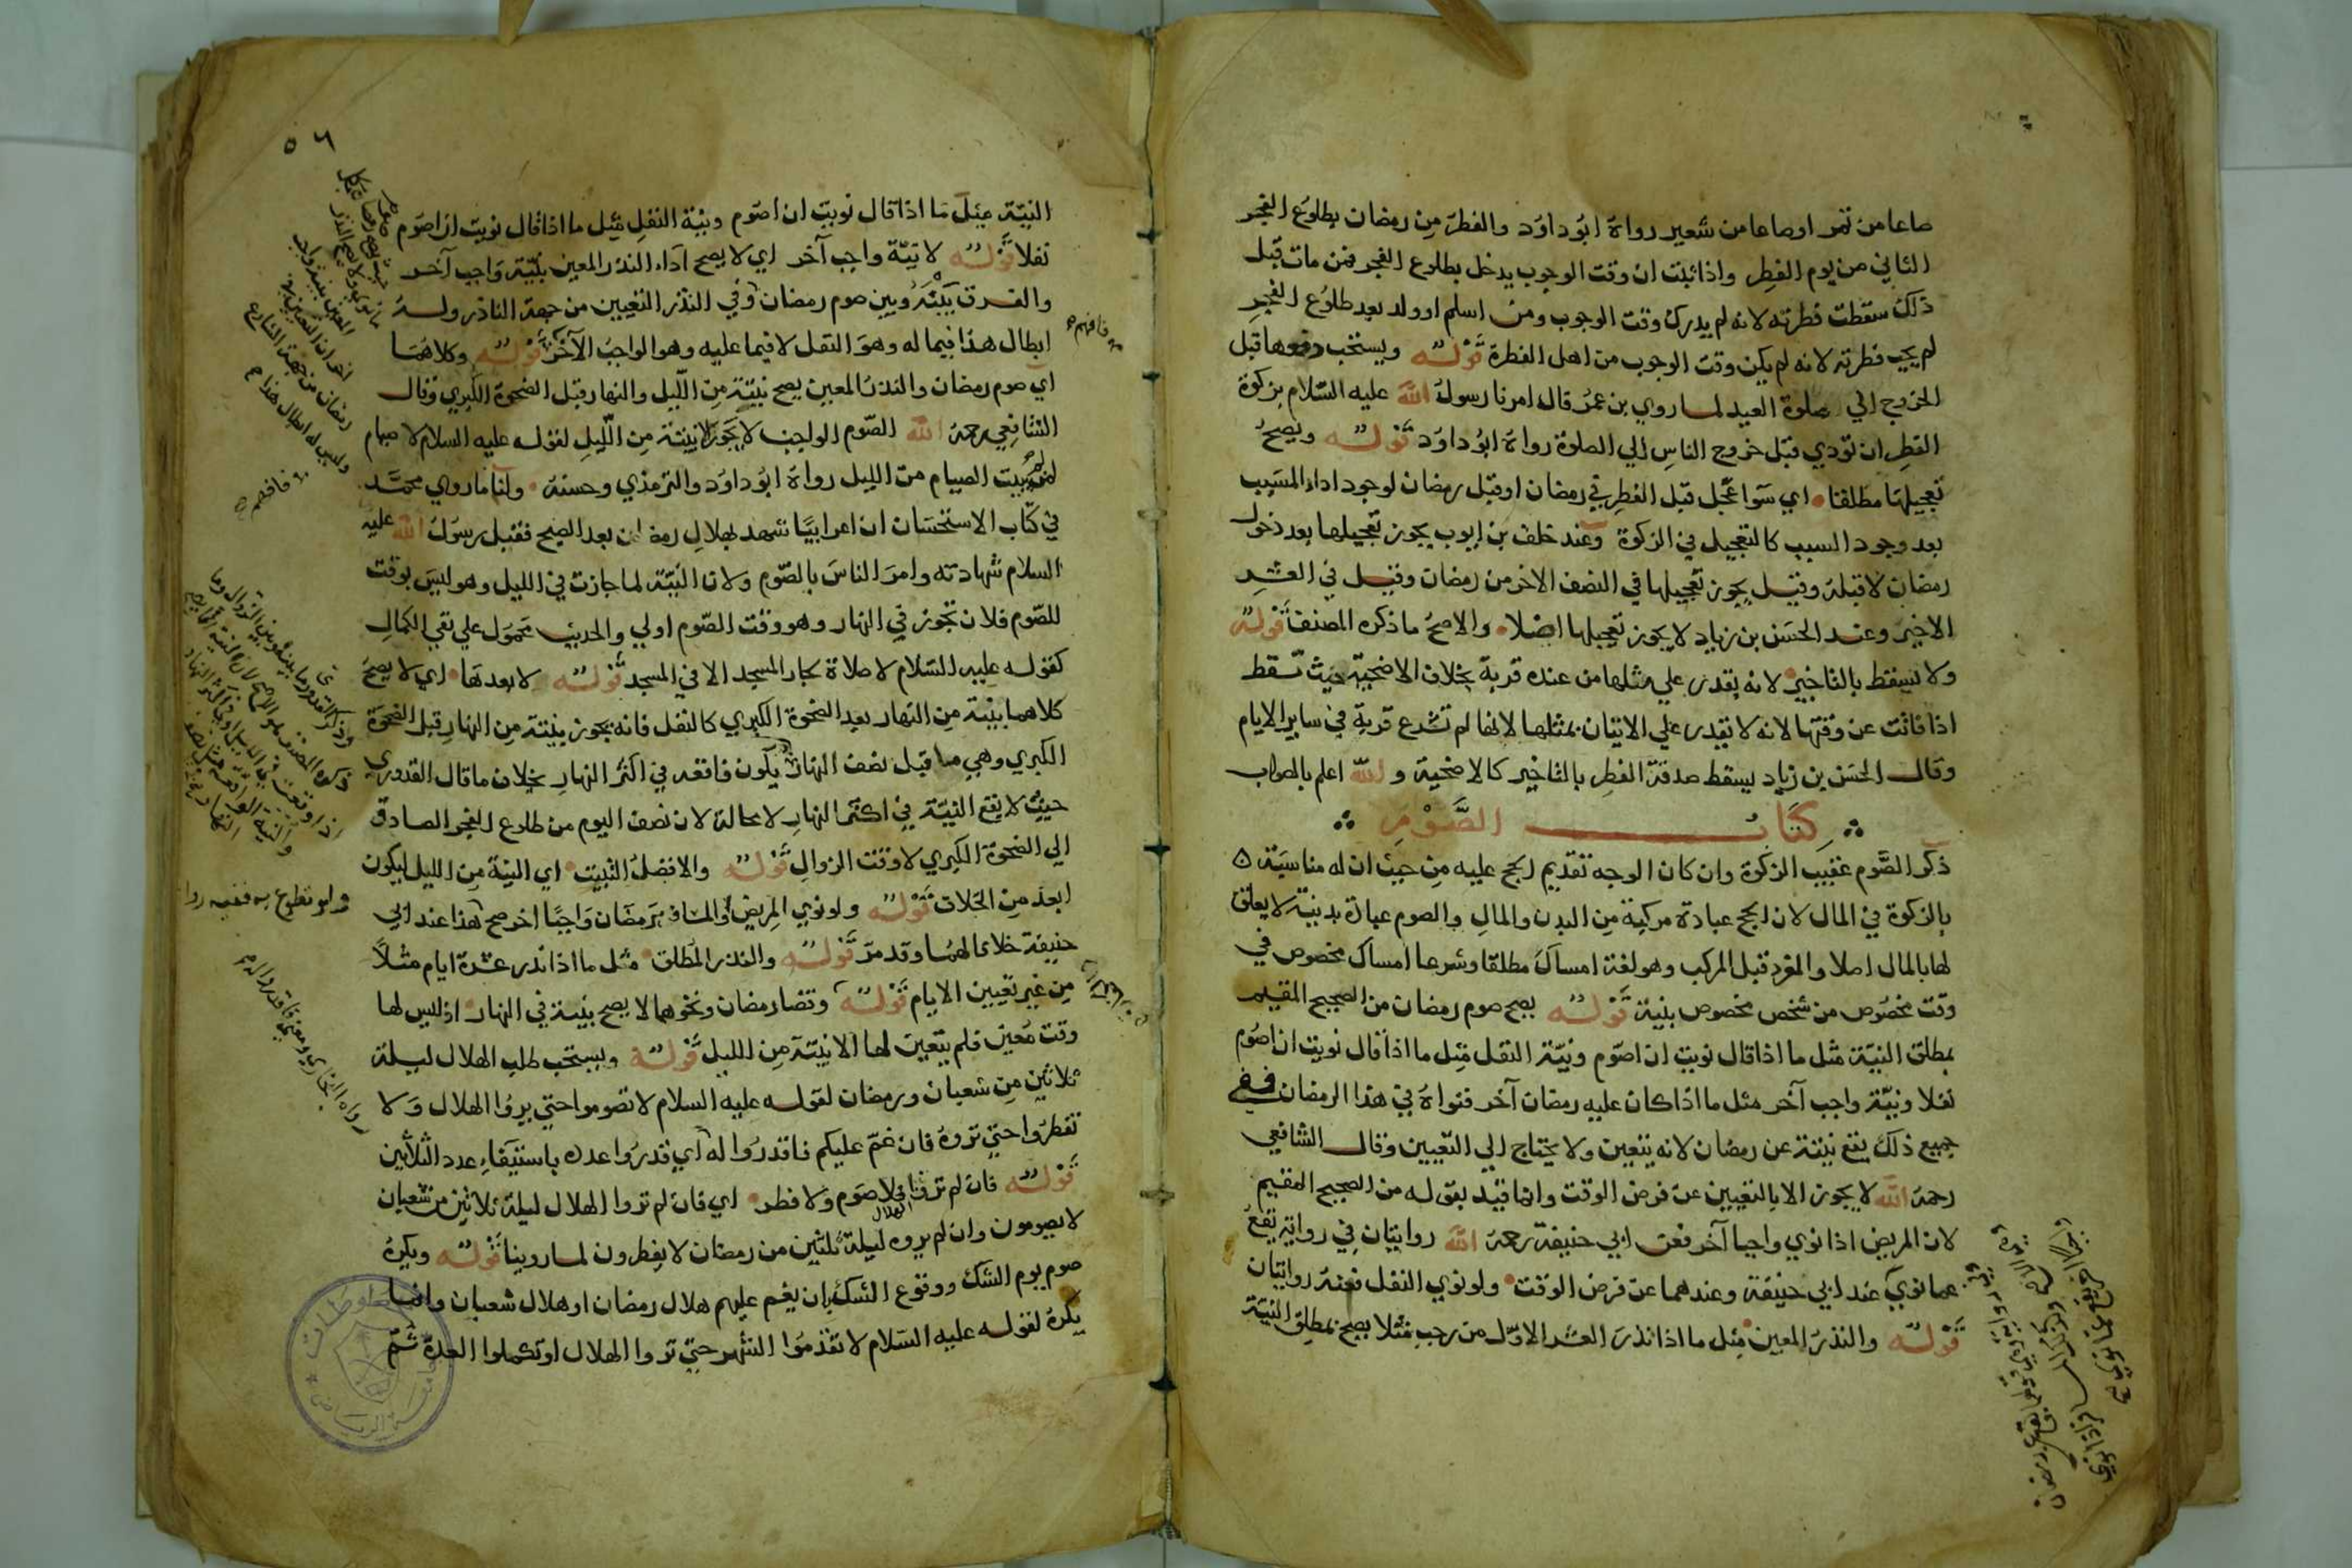 صاعا من تمر او صاعا من شعير رواه ابو داود والفطر من رمضان بطلوع الفجر
الثاني من يوم الفطر واذا ثبت ان وقت الوجوب يدخل بطلوع الفجر فمن مات قبل
ذلك سقطت فطرته لانه لم يدرك وقت الوجوب ومن اسلم او ولد بعد طلوع الفجر
لم يجب فطرته لانه لم يكن وقت الوجوب من اهل الفطرة قوله ويستحب دفعها قبل
الخروج الي صلوة العيد لما روي بن عمر قال امرنا رسول الله عليه السلام بزكوة
الفطر ان تؤدي قبل خروج الناس الي الصلوة رواه ابو داود قوله ويصح
تعجيلها مطلقا اي سوا عجل قبل الفطر في رمضان او قبل رمضان لوجود اداء المسبب
بعد وجود السبب كالتعجيل في الزكوة وعند خلف بن ايوب يجوز تعجيلها بعد دخول
رمضان لا قبله وقيل يجوز تعجيلها في النصف الاخر من رمضان وقيل في العشر
الاخير وعند الحسن بن زياد لا يجوز تعجيلها اصلا والاصح ما ذكره المصنف قوله
ولا تسقط بالتاخير لانه يقدر علي مثلها من عنده قربة بخلاف الاضحية حيث تسقط
اذا فاتت عن وقتها لانه لا يقدر علي الاتيان بمثلها لانها لم تشرع قربة في ساير الايام
وقال الحسن بن زياد يسقط صدقة الفطر بالتاخير كالاضحية والله اعلم بالصواب
كتاب الصوم
ذكر الصوم عقيب الزكوة وان كان الوجه تقديم الحج عليه من حيث ان له مناسبة
بالزكوة في المال لان الحج عبادة مركبة من البدن والمال والصوم عبادة بدنية لا تعلق
لها بالمال اصلا والمفرد قبل المركب وهو لغة امساك مطلقا وشرعا امساك مخصوص في
وقت مخصوص من شخص مخصوص بنية قوله يصح صوم رمضان من الصحيح المقيم
بمطلق النية مثل ما اذا قال نويت ان اصوم ونية النفل مثل ما اذا قال نويت ان اصوم
نفلا ونية واجب آخر مثل ما اذا كان عليه رمضان آخر فنواه في هذا الرمضان ففي
جميع ذلك يقع نيته عن رمضان لانه يتعين ولا يحتاج الي التعيين وقال الشافعي
رحمه الله لا يجوز الا بالتعيين عن فرض الوقت وانما قيد بقوله من الصحيح المقيم
لان المريض اذا نوي واجبا آخر فعن ابي حنيفة رحمه الله روايتان في رواية تقع
عما نوي عند ابي حنيفة وعندهما عن فرض الوقت ولو نوي النفل فعنه روايتان
قوله والنذر المعين مثل ما اذا نذر العشر الاول من رجب مثلا يصح بمطلق النية
٥٦
النية مثل ما اذا قال نويت ان اصوم ونية النفل مثل ما اذا قال نويت ان اصوم
نفلا قوله لا بنية واجب آخر اي لا يصح اداء النذر المعين بنية واجب آخر
والفرق بينه وبين صوم رمضان وفي النذر التعيين من جهة الناذر وله
ابطال هذا فيما له وهو النفل لا فيما عليه وهو الواجب الآخر قوله وكلاهما
اي صوم رمضان والنذر المعين يصح بنيته من الليل والنهار قبل الضحوة الكبري وقال
الشافعي رحمه الله الصوم الواجب لا يجوز الا بنيته من الليل لقوله عليه السلام لا صيام
لمن لم يبيت الصيام من الليل رواه ابو داود والترمذي وحسنه ولنا ما روي محمد
في كتاب الاستحسان ان اعرابيا شهد بهلال رمضان بعد الصبح فقبل رسول الله عليه
السلام شهادته وامر الناس بالصوم ولان النية لما جازت في الليل وهو ليس بوقت
للصوم فلان تجوز في النهار وهو وقت الصوم اولي والحديث محمول علي نفي الكمال
كقوله عليه السلام لا صلاة لجار المسجد الا في المسجد قوله لا بعدها اي لا يصح
كلاهما بنية من النهار بعد الضحوة الكبري كالنفل فانه يجوز بنيته من النهار قبل الضحوة
الكبري وهي ما قبل نصف النهار يكون فاقعه في اكثر النهار بخلاف ما قال القدوري
حيث لا يقع النية في اكثر النهار لا محالة لان نصف اليوم من طلوع الفجر الصادق
الي الضحوة الكبري لا وقت الزوال قوله والافضل التبييت اي النية من الليل ليكون
ابعد من الخلاف قوله ولو نوي المريض او المسافر برمضان واجبا اخر صح هذا عند ابي
حنيفة خلافا لهما وقد مر قوله والنذر المطلق مثل ما اذا نذر عشرة ايام مثلا
من غير تعيين الايام قوله وقضا رمضان ونحوهما لا يصح بنية في النهار اذ ليس لها
وقت معين فلم يتعين لها الا بنية من الليل قوله ويستحب طلب الهلال ليلة
ثلاثين من شعبان ورمضان لقوله عليه السلام لا تصوموا حتي يروا الهلال ولا
تفطروا حتي تروه فان غم عليكم فاقدروا له اي قدروا عدده باستيفاء عدد الثلاثين
قوله فان لم تر فلا صوم ولا فطر اي فان لم تروا الهلال ليلة ثلاثين من شعبان
لا يصومون وان لم يروه ليلة ثلثين من رمضان لا يفطرون لما روينا قوله ويكره
صوم يوم الشك ووقوع الشك بان يغم عليهم هلال رمضان او هلال شعبان وانما
يكره لقوله عليه السلام لا تقدموا الشهر حتي تروا الهلال او تكملوا العدة ثم